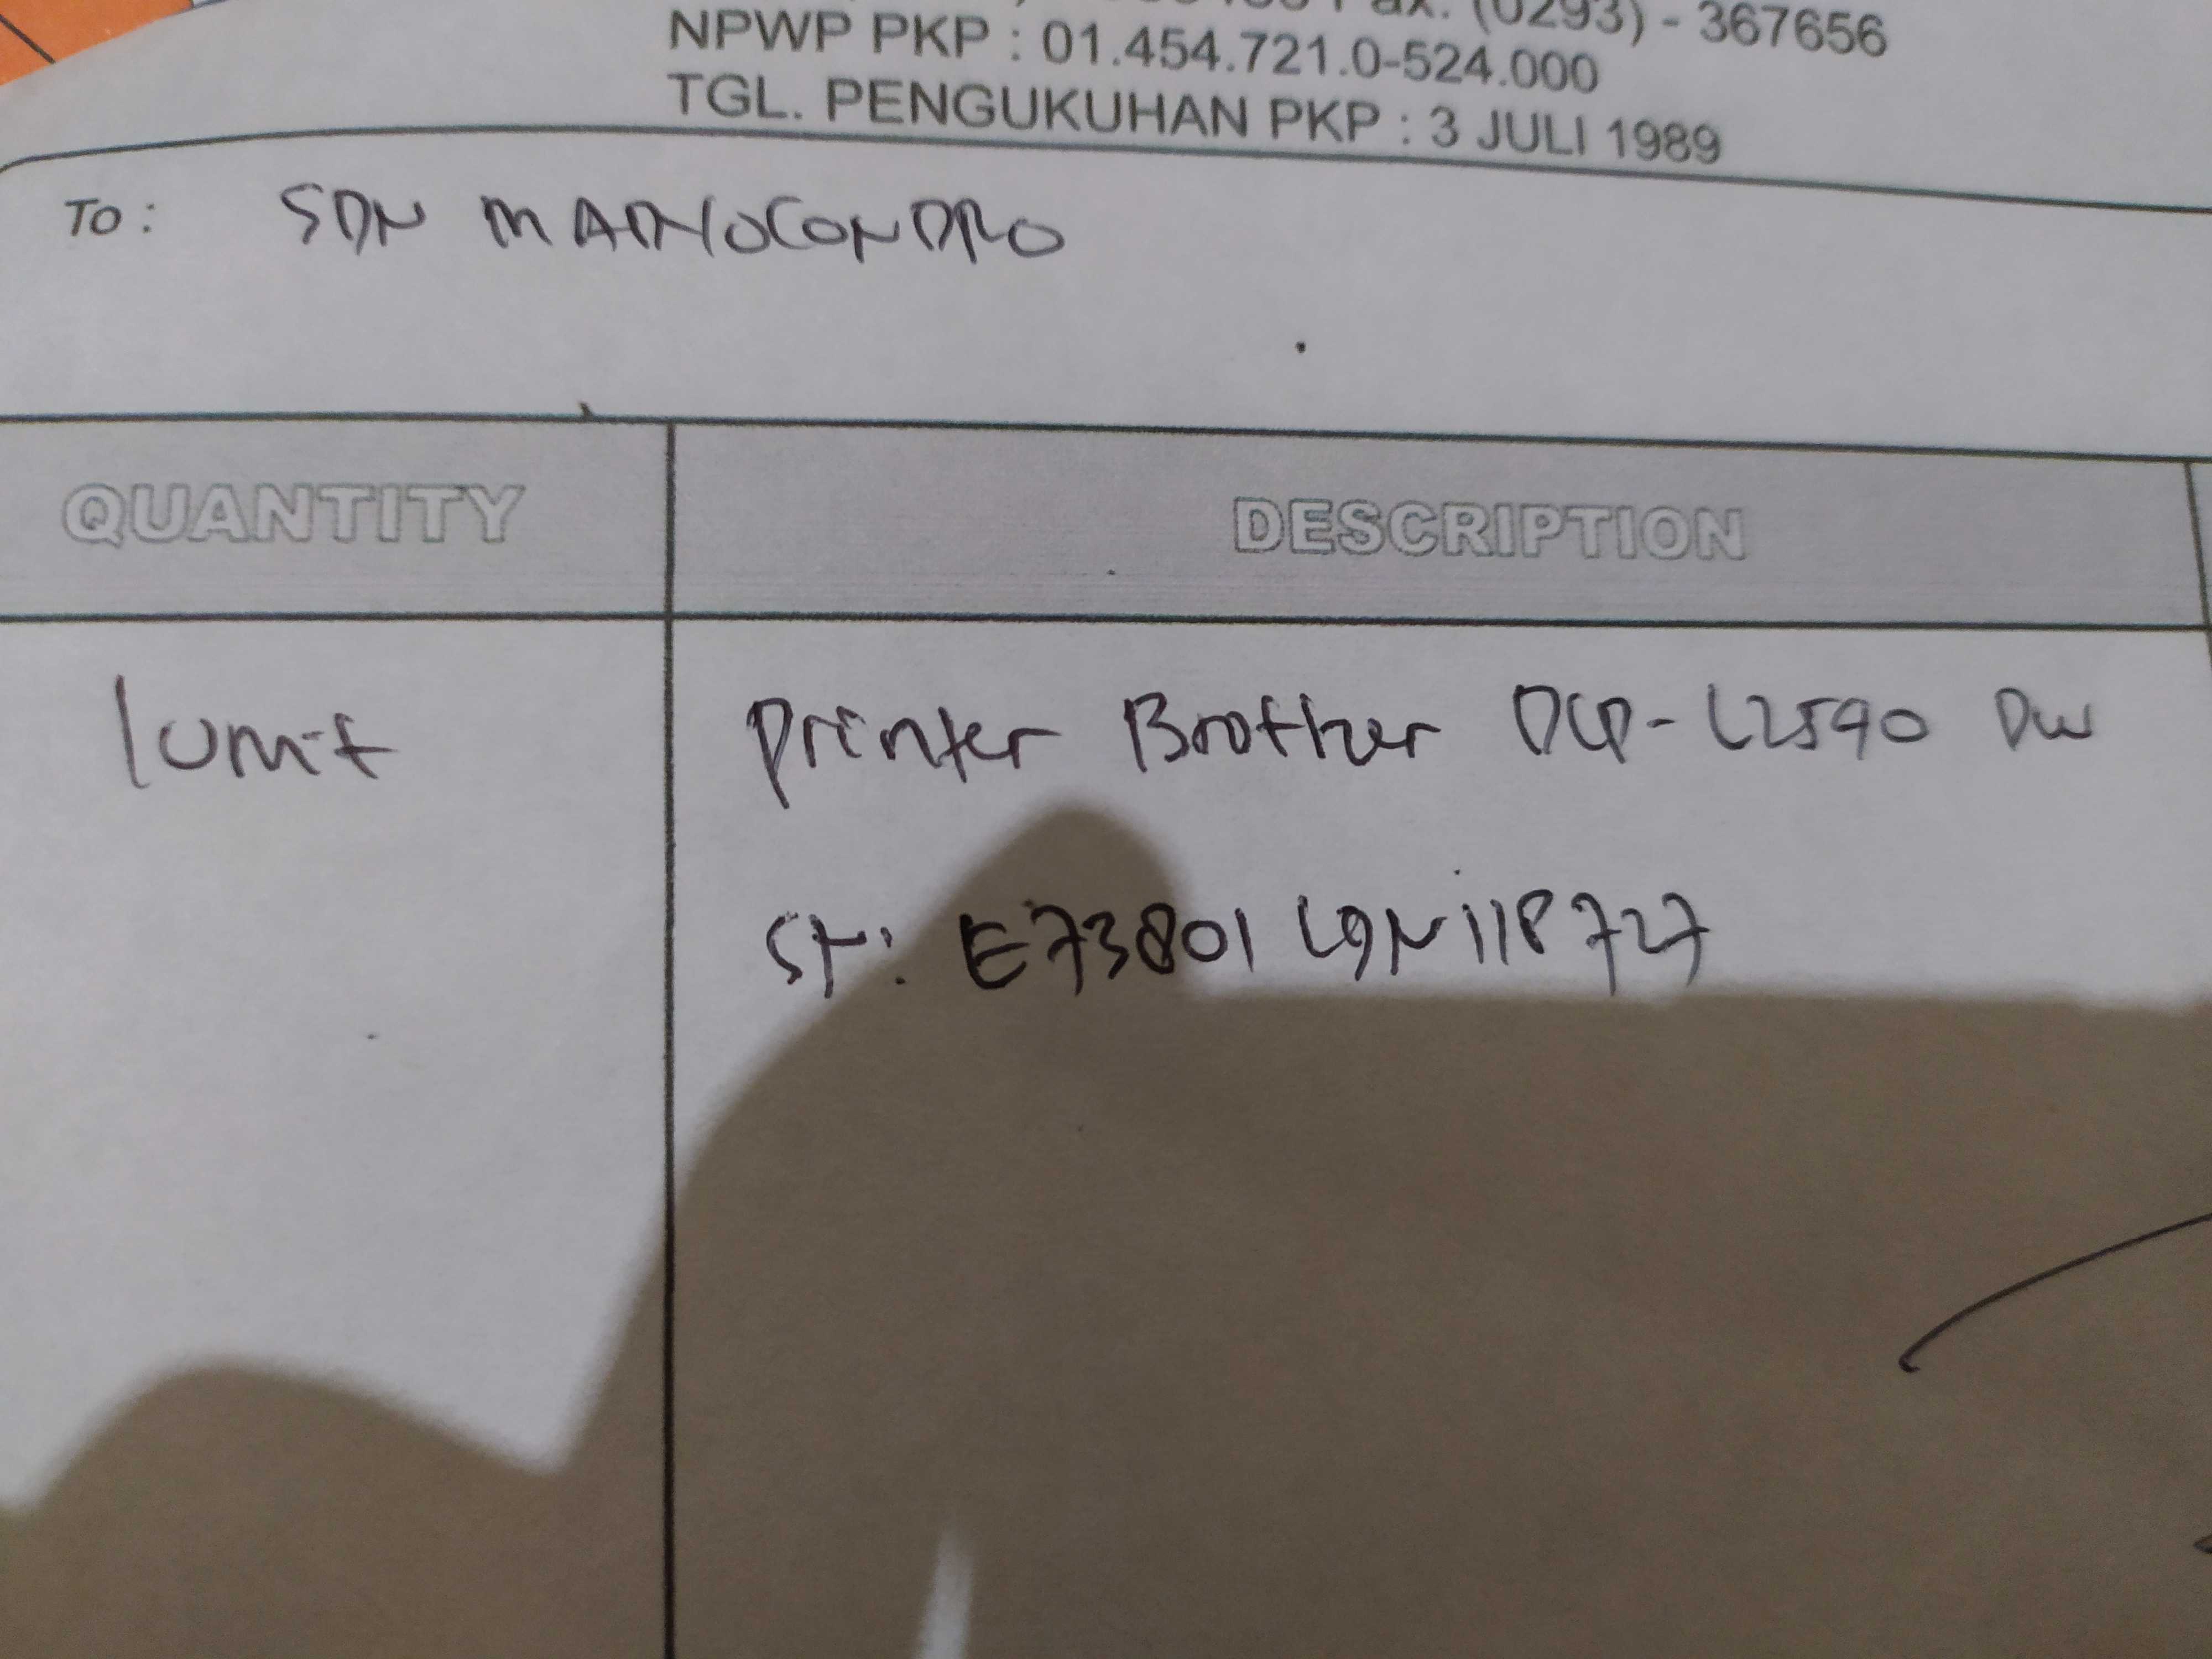 Fax. (0293) - 367656
NPWP PKP : 01.454.721.0-524.000
TGL. PENGUKUHAN PKP : 3 JULI 1989
TO: SDN MADYOCONDRO
QUANTITY DESCRIPTION
1 unit Printer Brother DCP-L2540 DW
SN: E73801L9N118727